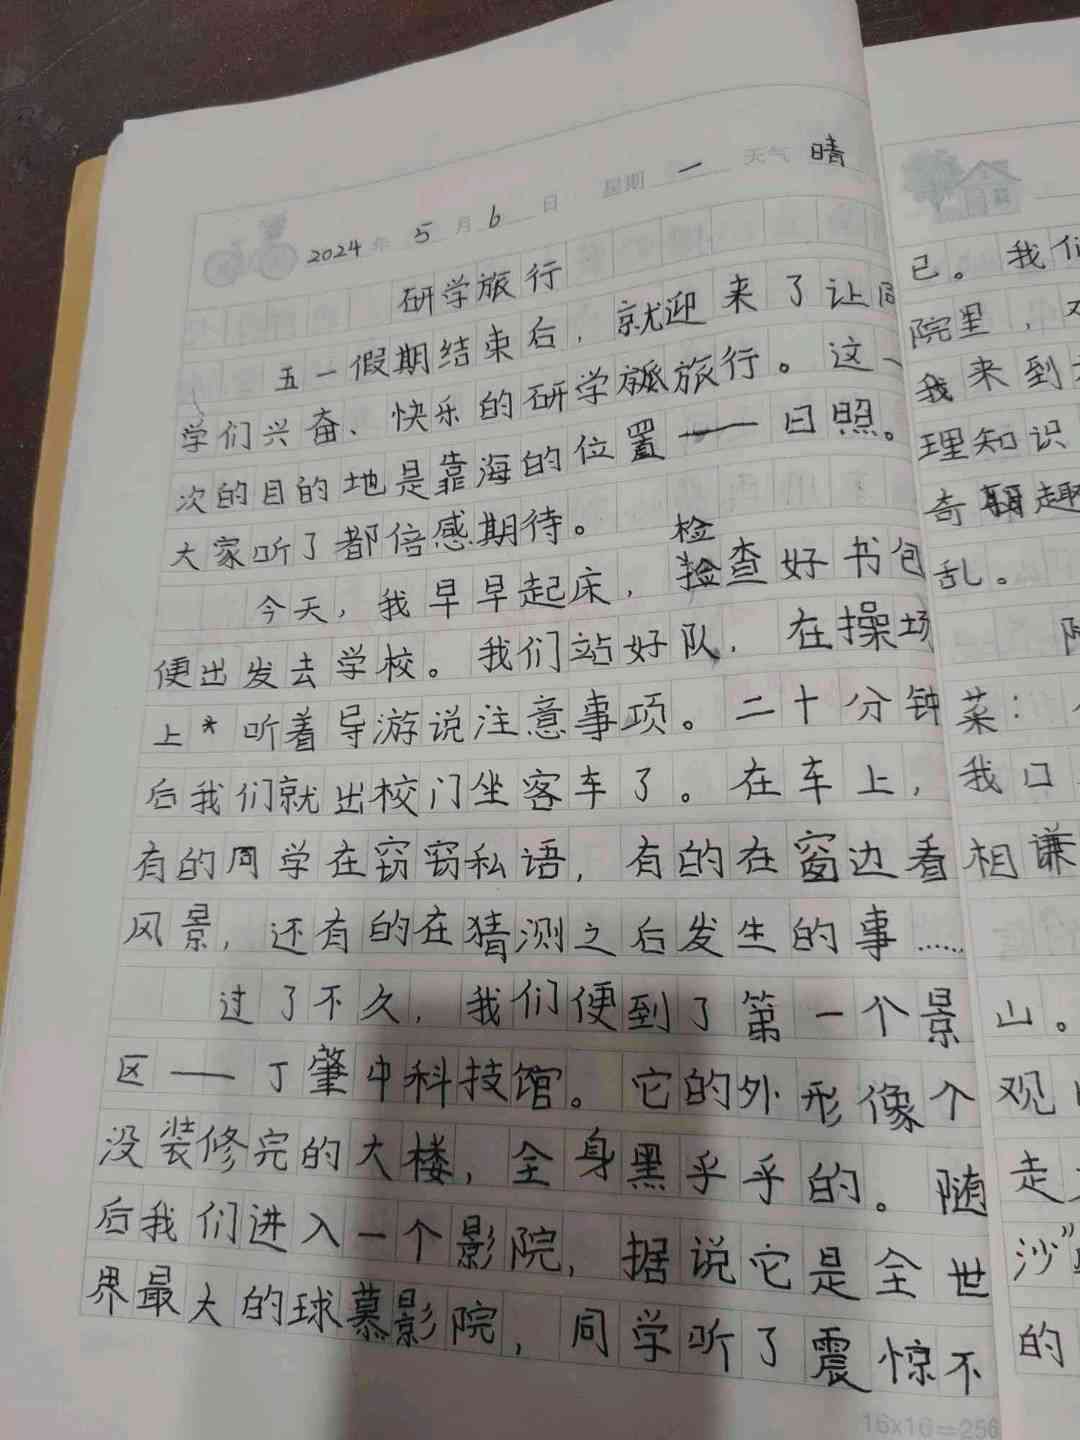 2024年 5月 6日 星期 一 天气 晴
研学旅行
五一假期结束后，就迎来了让同
学们兴奋、快乐的研学旅行。这一
次的目的地是靠海的位置——日照。
大家听了都倍感期待。
检
今天，我早早起床，检查好书包
便出发去学校。我们站好队，在操场
上*听着导游说注意事项。二十分钟
后我们就出校门坐客车了。在车上，
有的同学在窃窃私语，有的在窗边看
风景，还有的在猜测之后发生的事……
过了不久，我们便到了第一个景
区——丁肇中科技馆。它的外形像个
没装修完的大楼，全身黑乎乎的。随
后我们进入一个影院，据说它是全世
界最大的球慕影院，同学听了震惊不
16×16=256
已。我们
院里，
我来到
理知识
奇 趣
乱。
菜：
我口
相谦
山。
观
走
沙"
的